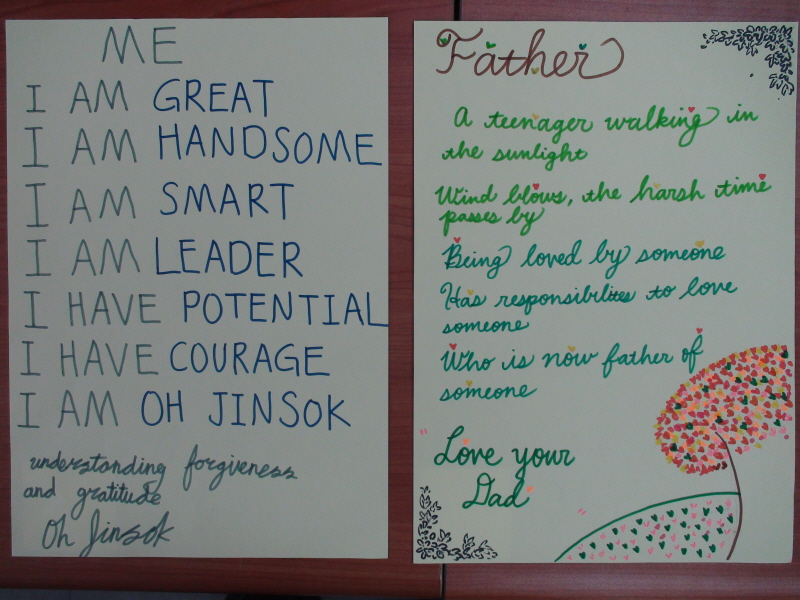 ME
I AM GREAT
I AM HANDSOME
I AM SMART
I AM LEADER
I HAVE POTENTIAL
I HAVE COURAGE
I AM OH JINSOK
understanding forgiveness
and gratitude
Oh Jinsok
Father
A teenager walking in
the sunlight
Wind blows, the harsh time
passes by
Being loved by someone
Has responsibilites to love
someone
Who is now father of
someone
Love your
Dad